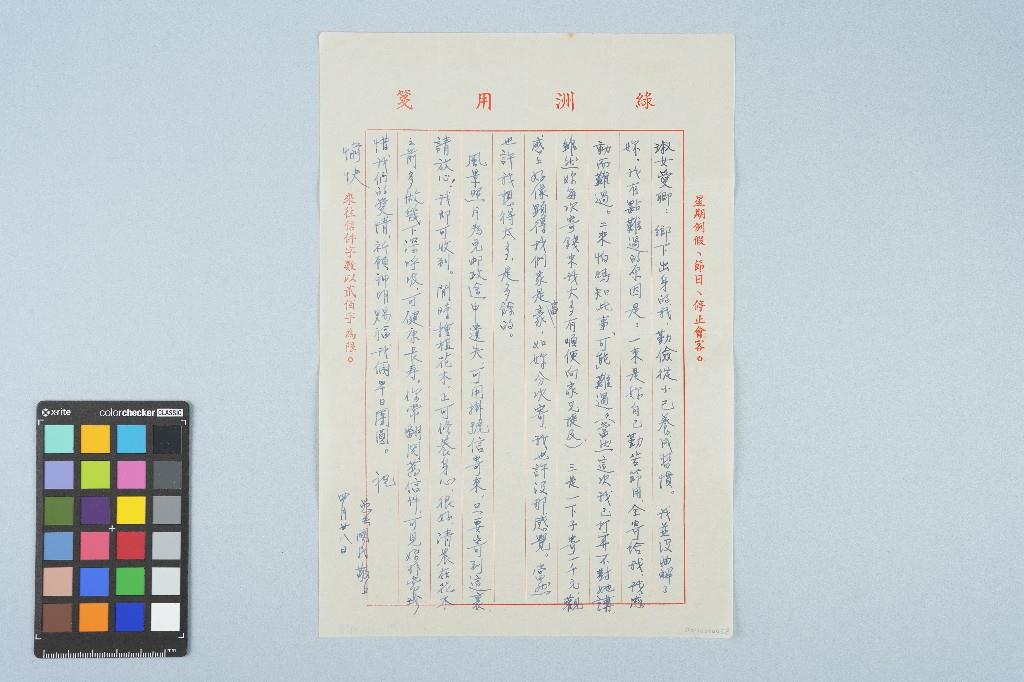 綠洲用箋
星期例假、節日、停止會客。
淑女愛卿：鄉下出身的我，勤儉從小已養成習慣。我並沒曲解了
妳，我有點難過的原因是：一來是妳自己勤苦節用，全寄給我，我感
動而難過。二來怕媽知此事，可能難過，（當然這次我已打算不對她講
雖然妳每次寄錢來我大多有順便向家兄提及）三是一下子寄一千元，觀
感上好像顯得我們家是富豪，如妳分次寄，我也許沒那感覺。當然
也許我想得太多，是多餘的。
風景照片為免郵政途中遺失，可用掛號信寄來，只要寄到這裏
請放心，我即可收到。閒時種植花木，上可修養身心，很好，清晨在花木
之前多做幾下深呼吸，可健康長壽。你常翻閱舊信件，可見妳非常珍
惜我們的愛情，祈願神明賜福我倆早日團圓。祝
愉快
國民敬上
四月廿八日
來往信件字數以貳佰字為限。
xrite
colorchecker CLASSIC
mm